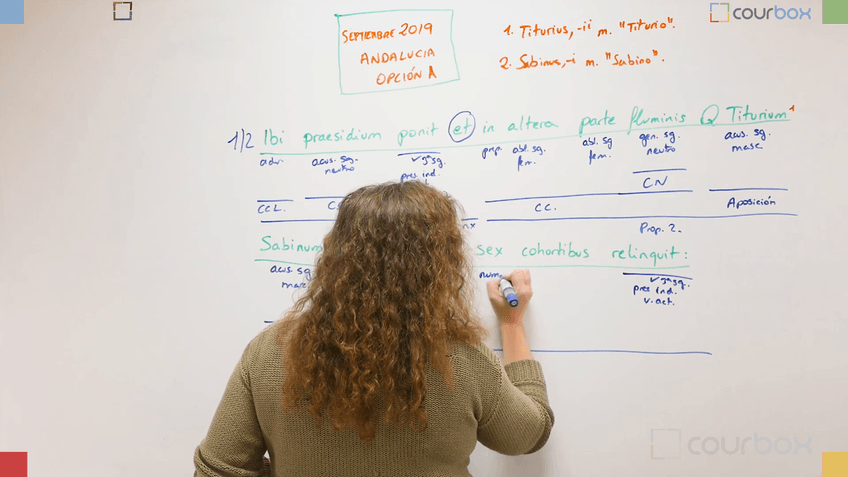 courbox
SEPTIEMBRE 2019
ANDALUCIA
OPCIÓN A
1. Titurius, -ii m. "Titurio".
2. Sabinus, -i m. "Sabino".
1/2 Ibi praesidium ponit et in altera parte fluminis Q Titurium¹
adv. acus. sg. neutro v 3ª sg. pres. ind. prep. abl. sg. fem. abl. sg fem. gen. sg. neutro acus. sg masc
CN
CCL. CC. Aposición
Prop. 2.
Sabinum sex cohortibus relinquit:
acus. sg masc num. v 3ª sg. pres ind. v. act.
courbox